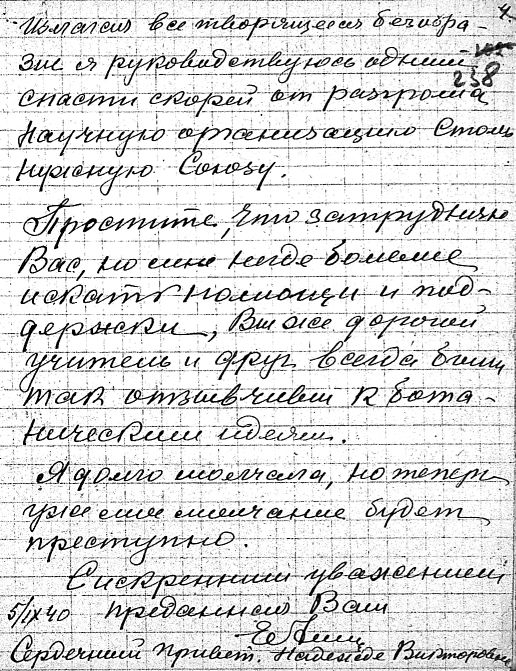 4.
Излагая все творящееся безобра-
зие я руководствуюсь одним
238
спасти скорей от разгрома
научную организацию столь
нужную Союзу.
Простите, что затрудняю
Вас, но мне негде больше
искать помощи и под-
держки, Вы же дорогой
учитель и друг всегда были
так отзывчивы к бота-
ническим идеям.
Я долго молчала, но теперь
уже мне молчание будет
преступно.
С искренним уважением
5/IX 40 преданная Вам
Сердечный привет Надежде Викторовне